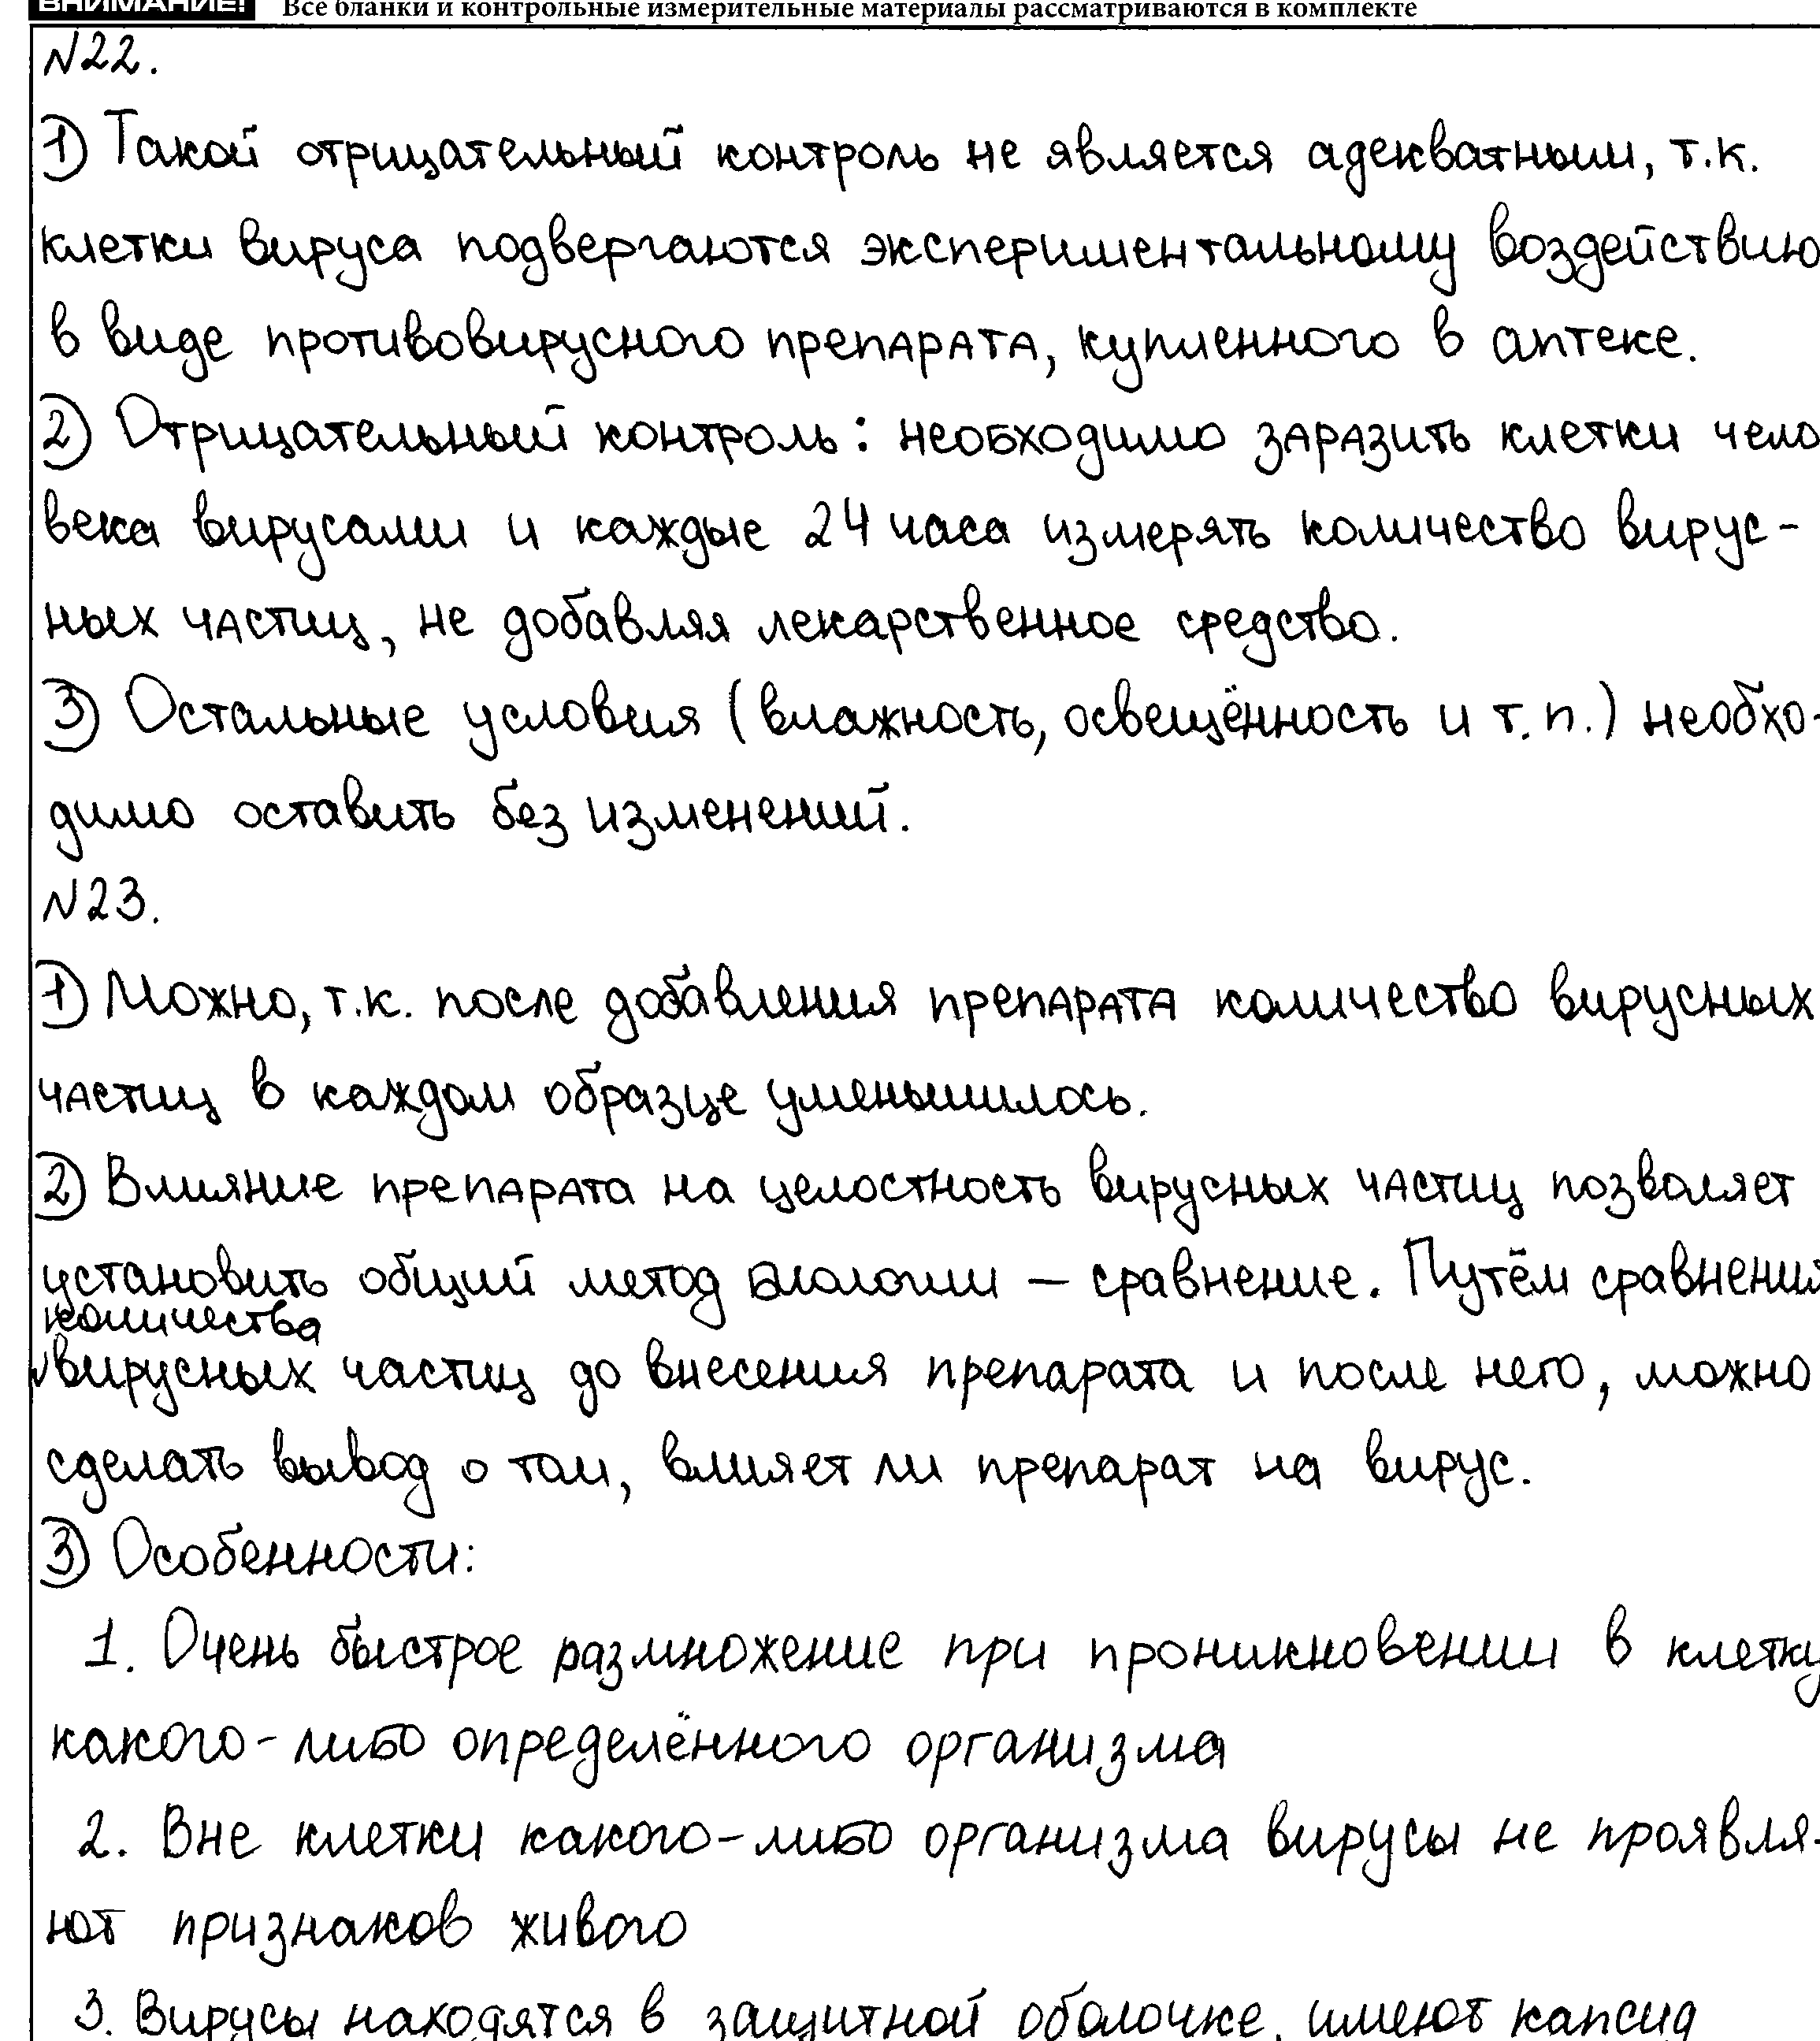 ВНИМАНИЕ! Все бланки и контрольные измерительные материалы рассматриваются в комплекте
№22.
1) Такой отрицательный контроль не является адекватным, т.к.
клетки вируса подвергаются экспериментальному воздействию
в виде противовирусного препарата, купленного в аптеке.
2) Отрицательный контроль: необходимо заразить клетки чело
века вирусами и каждые 24 часа измерять количество вирус-
ных частиц, не добавляя лекарственное средство.
3) Остальные условия (влажность, освещённость и т.п.) необхо-
димо оставить без изменений.
№23.
1) Можно, т.к. после добавления препарата количество вирусных
частиц в каждом образце уменьшилось.
2) Влияние препарата на целостность вирусных частиц позволяет
установить общий метод биологии – сравнение. Путём сравнения
количества
√вирусных частиц до внесения препарата и после него, можно
сделать вывод о том, влияет ли препарат на вирус.
3) Особенности:
1. Очень быстрое размножение при проникновении в клетку
какого-либо определённого организма
2. Вне клетки какого-либо организма вирусы не проявля-
ют признаков живого
3. Вирусы находятся в защитной оболочке, имеют капсид